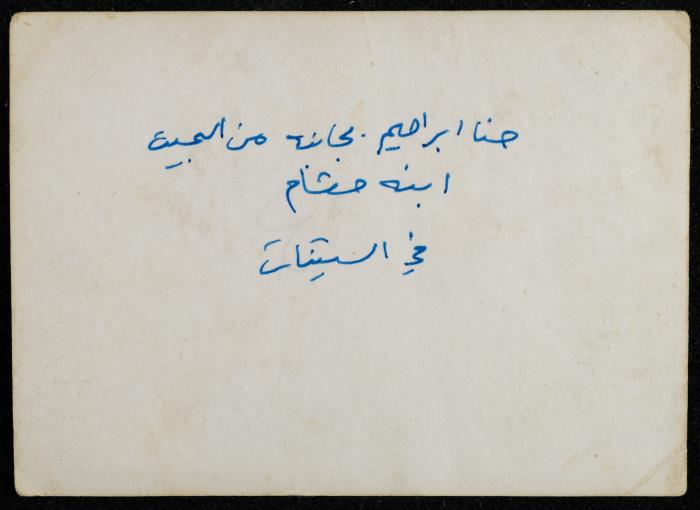 حنا ابراهيم. بجانبه من اليمين
ابنه هشام
في الستينات